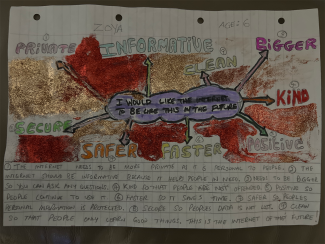 ZOYA AGED 6
PRIVATE INFORMATIVE BIGGER
CLEAN
I WOULD LIKE THE INTERNET
TO BE LIKE THIS IN THE FUTURE
KIND
SECURE SAFER FASTER POSITIVE
INTERNET NEED TO BE MORE PRIVATE AS IT IS PERSONAL TO PEOPLE. THE
INTERNET SHOULD BE INFORMATIVE BECAUSE IT HELPS PEOPLE IN NEED. NEED TO BE BIGGER
SO YOU CAN ASK ANY QUESTIONS. KIND SO THAT PEOPLE ARE NOT OFFENDED. POSITIVE SO
PEOPLE CONTINUE TO USE IT. FASTER SO IT SAVES TIME. SAFER SO PEOPLES
PERSONAL INFORMATION IS PROTECTED. SECURE SO PEOPLES DATA IS NOT LOST. CLEAN
SO THAT PEOPLE ONLY LEARN GOOD THINGS. THIS IS THE INTERNET OF THE FUTURE!